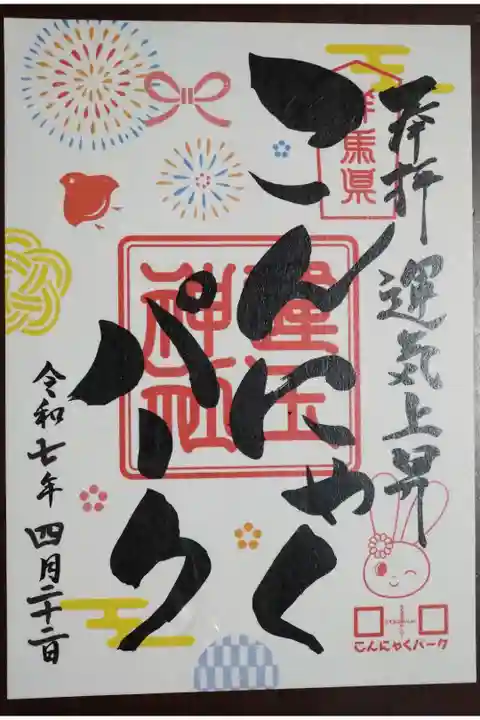 奉拝 運気上昇
群馬県
こんにゃく
パーク
神社
令和七年 四月二十二日
こんにゃくパーク